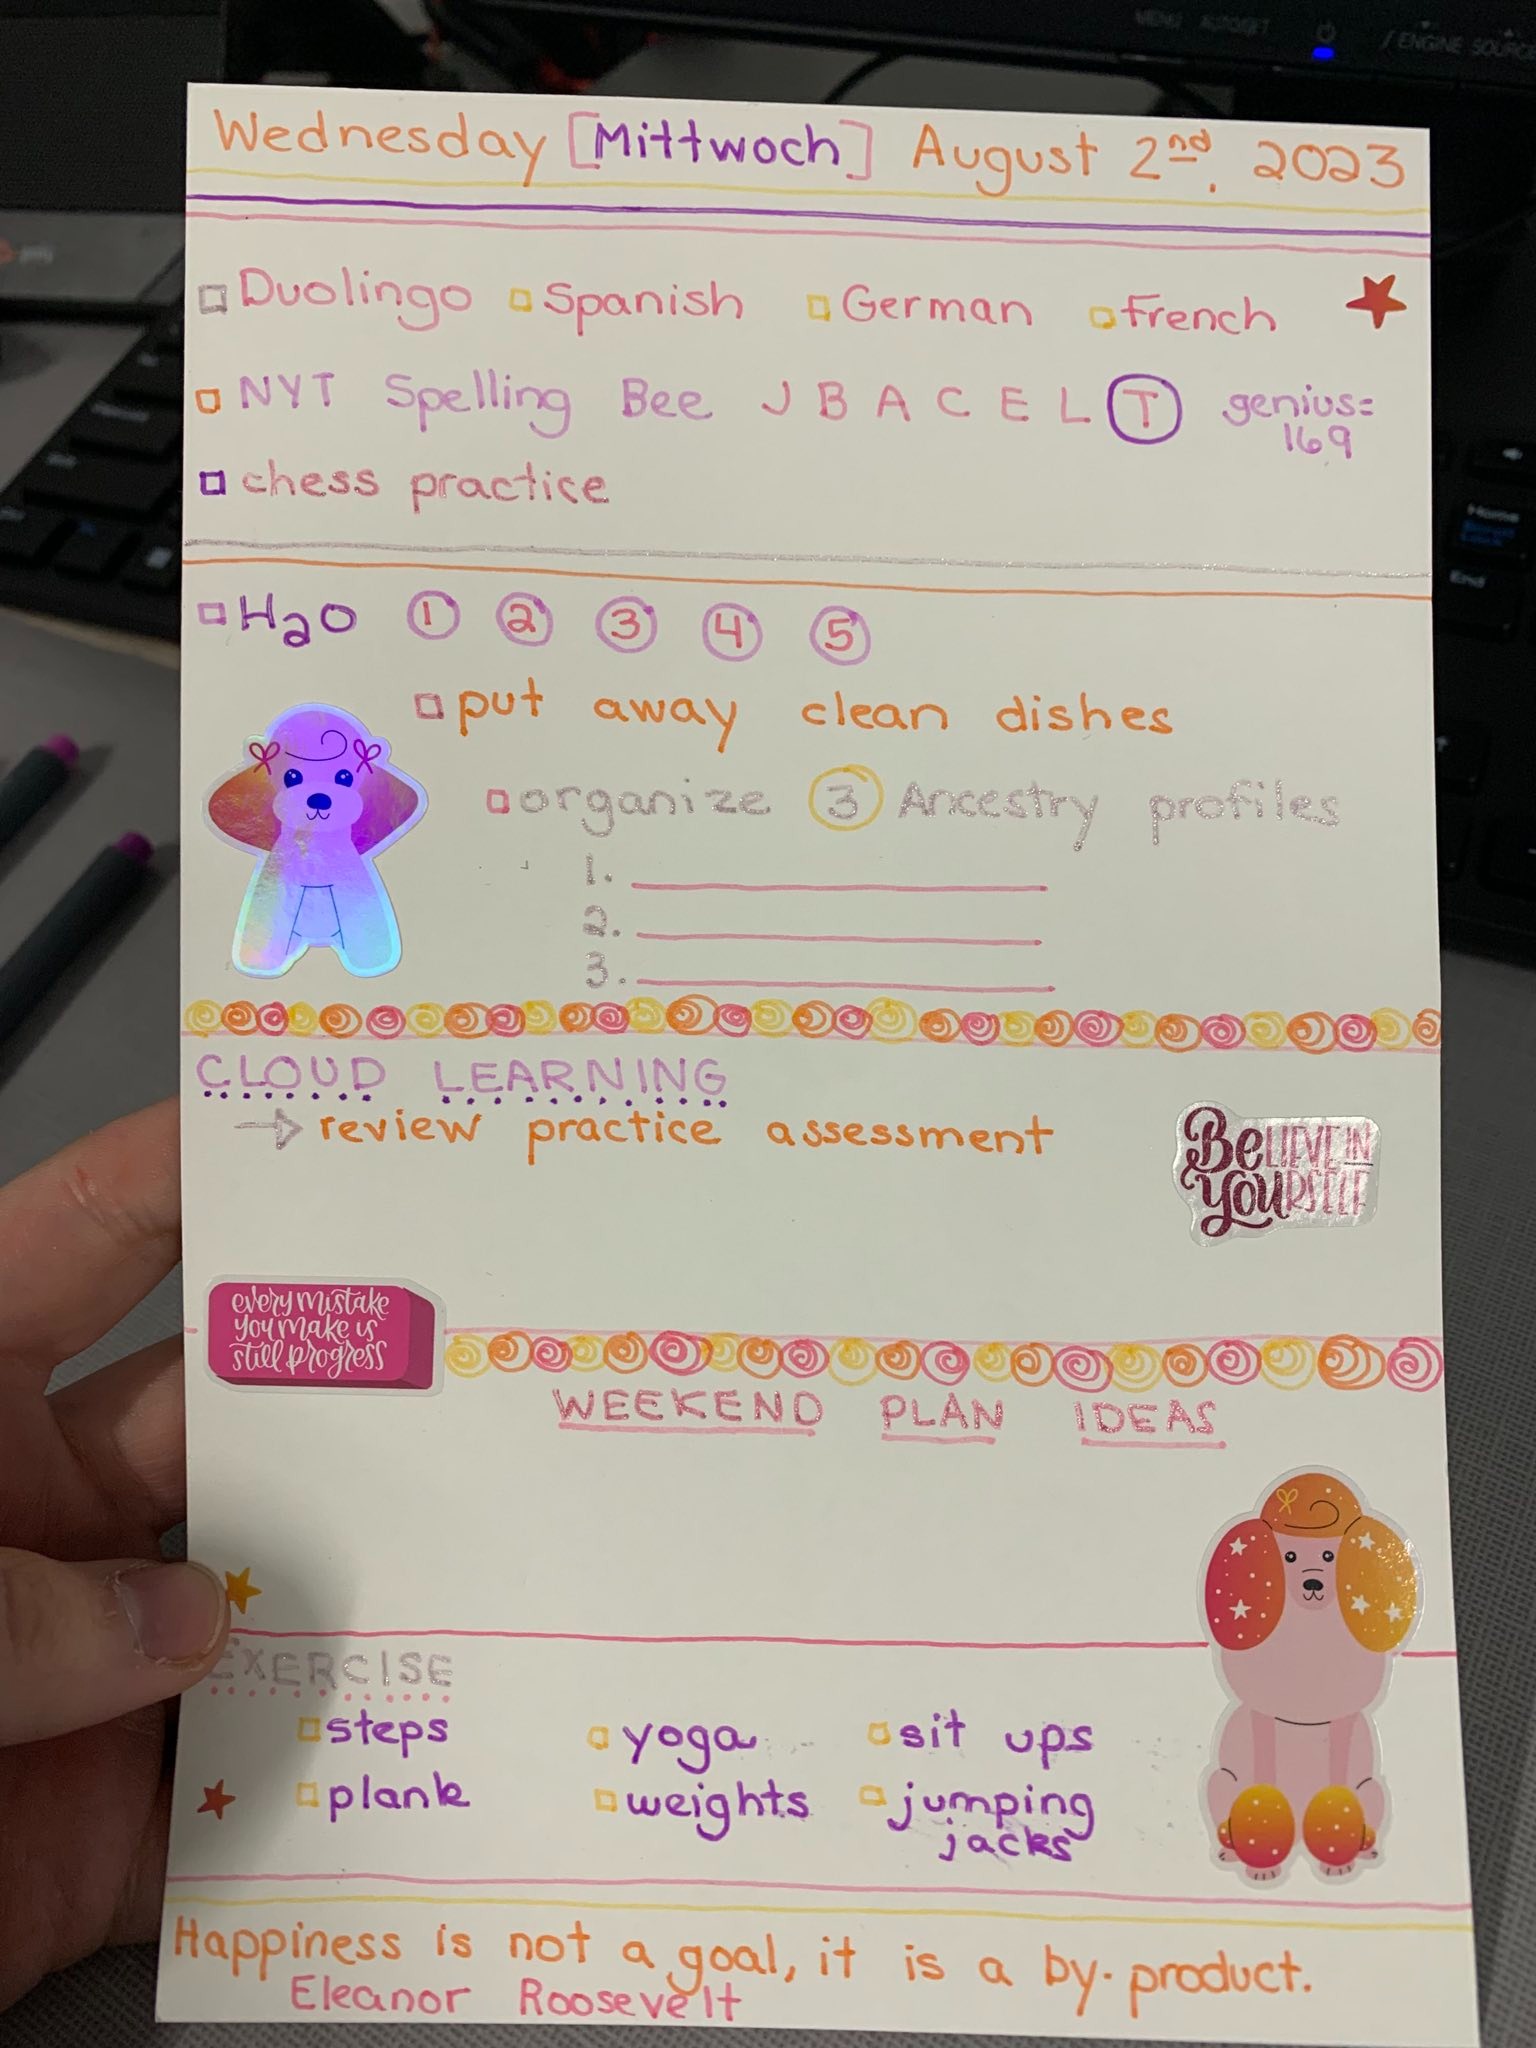 MENU AUTO/SET / ENGINE SOURCE
Wednesday [Mittwoch] August 2nd, 2023
Duolingo Spanish German French
NYT Spelling Bee J B A C E L T genius=
169
chess practice
H2O 1 2 3 4 5
put away clean dishes
organize 3 Ancestry profiles
1.
2.
3.
CLOUD LEARNING
→ review practice assessment
BELIEVE IN
YOURSELF
every mistake
you make is
still progress
WEEKEND PLAN IDEAS
EXERCISE
steps yoga sit ups
plank weights jumping
jacks
Happiness is not a goal, it is a by-product.
Eleanor Roosevelt
Home
End